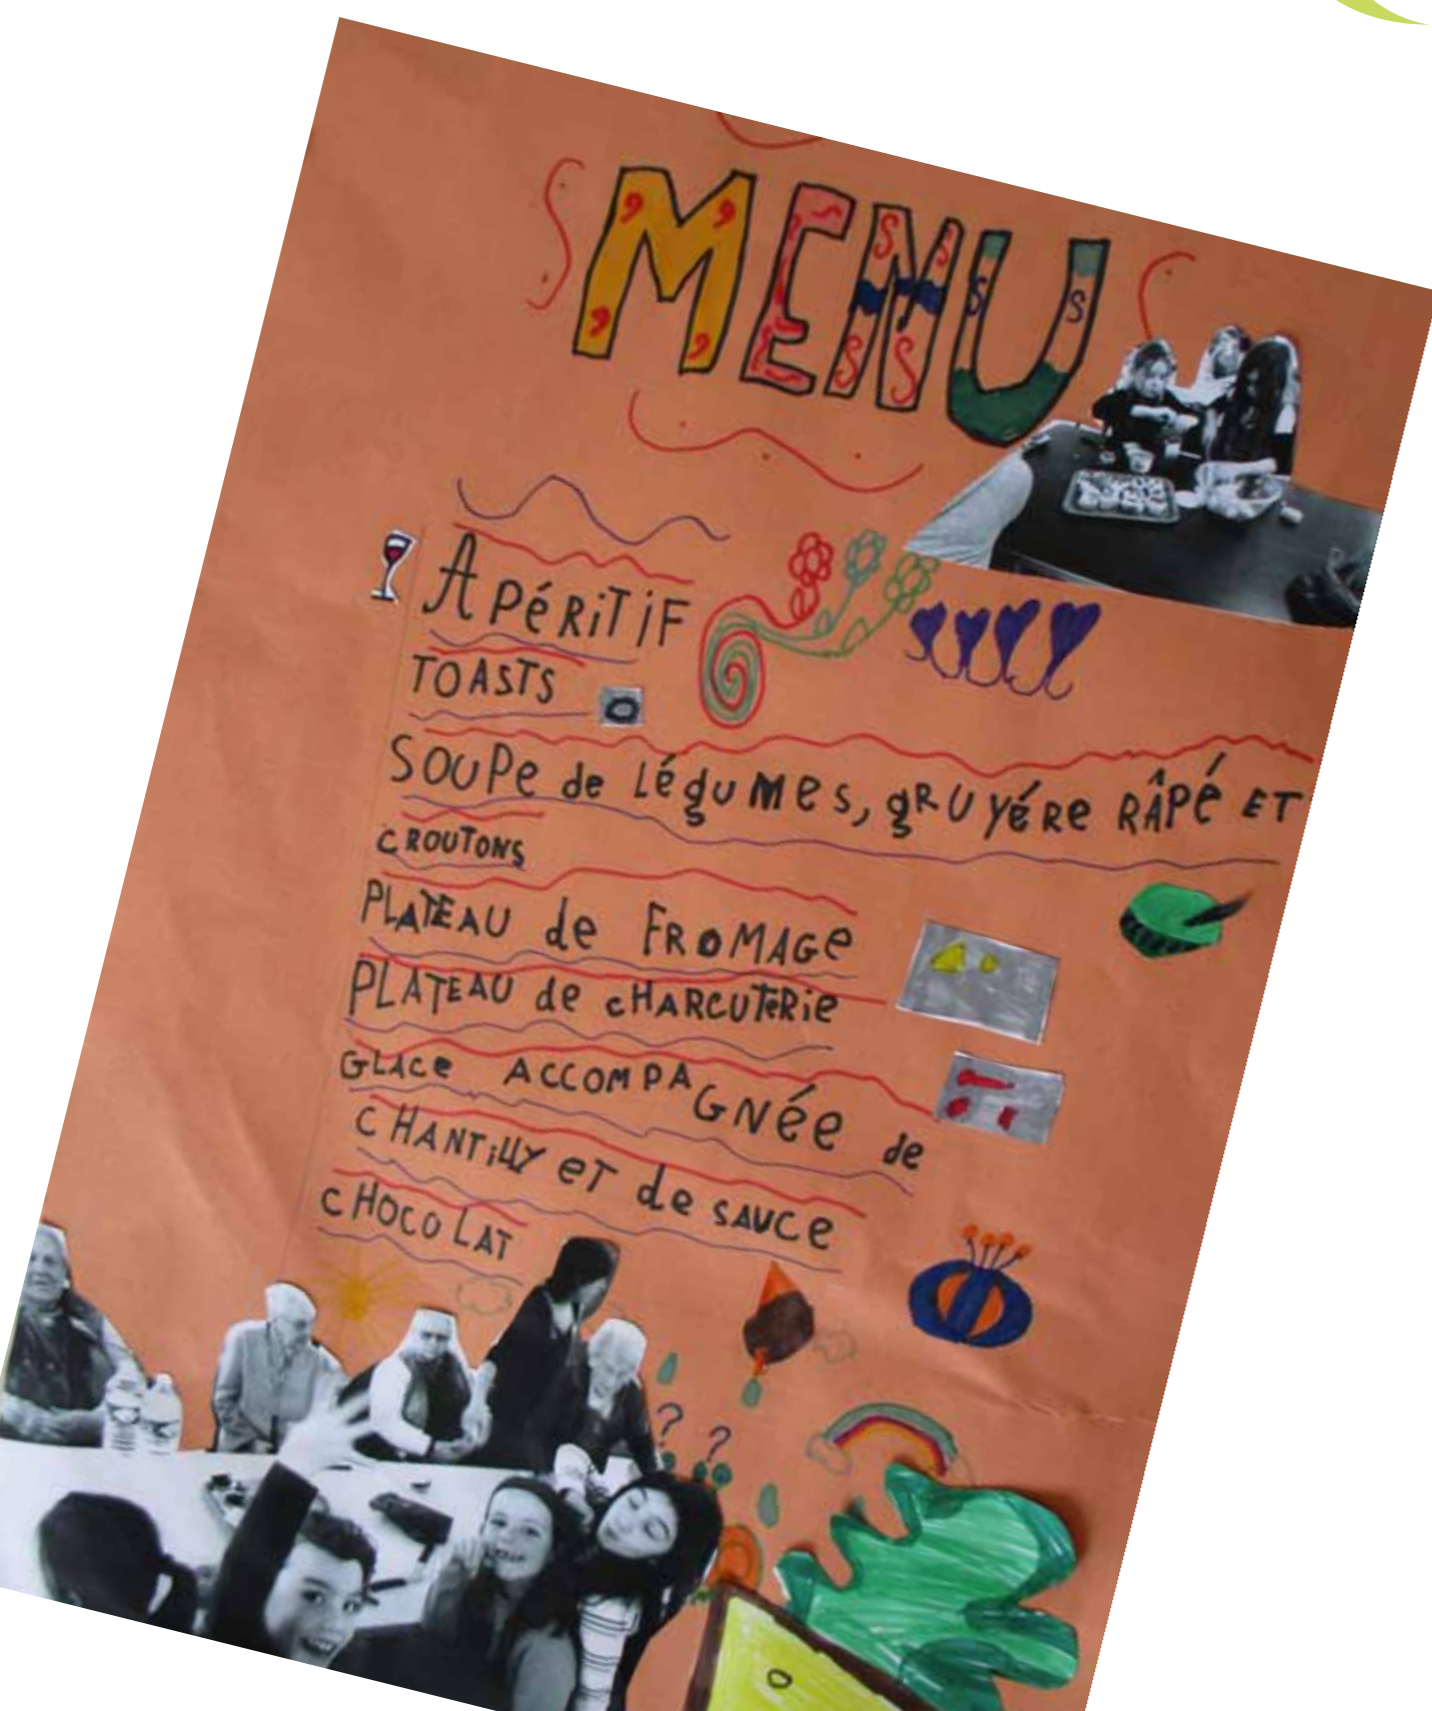 MENU
APéRiTiF
TOASTS
SOUPe de LéguMes, gRUyéRe RÂPé ET
CROUTONS
PLATEAU de FROMAGe
PLATEAU de cHARCUTeRie
GLACe ACCOMPAGNée de
CHANTiLLY eT de SAUCe
CHOCOLAT
? ?